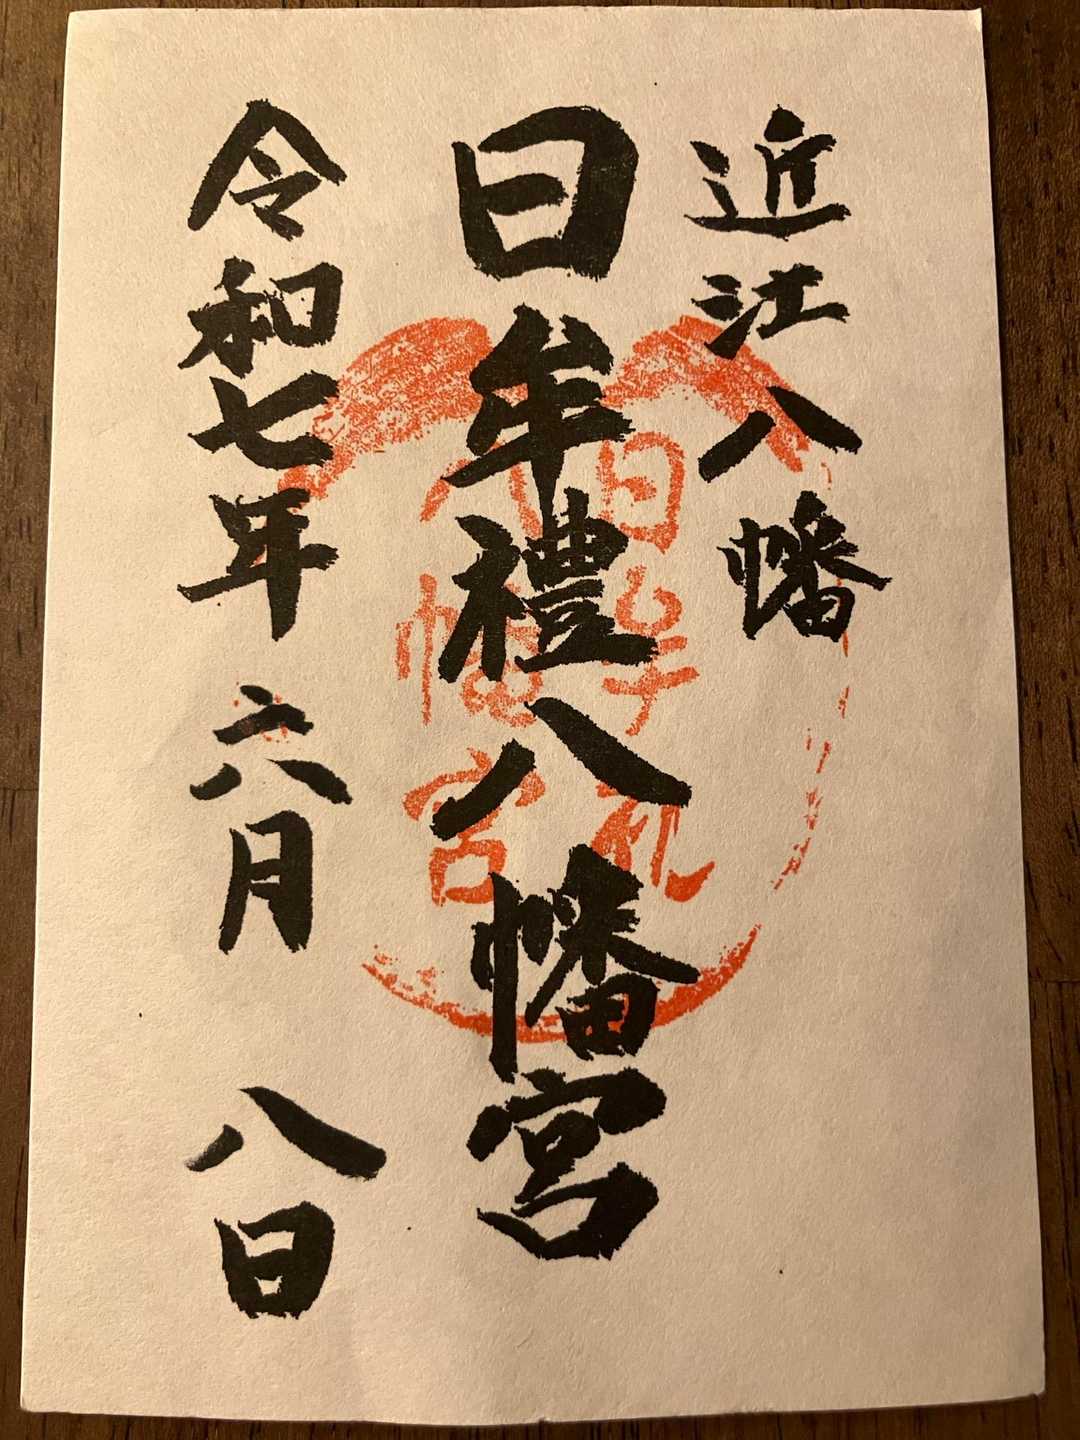 近江八幡
日牟禮八幡宮
日牟礼
八幡宮
令和七年六月八日